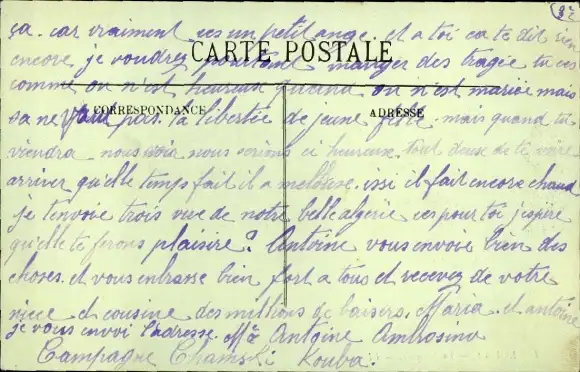 82
ça. car vraiment ces un petit ange. et a toi ca te dit rien
encore je voudrez pourtant manger des tragée tu ces
CARTE POSTALE
comme on n'est heureux quand on n'est mariée mais
sa ne vaut pas la libertée de jeune fille mais quand tu
CORRESPONDANCE
ADRESSE
viendra nous voir nous serions ci heureux. tout deuse de te voire
arriver qu'elle temps fait il a meldeuse. issi il fait encore chaud
je t'envoie trois vue de notre belle algérie ces pour toi j'espire
qu'elle te ferons plaisire? Antoine vous envoie bien des
choses. et vous entrasse bien fort a tous et recevez de votre
niece et cousine des millions de baisers. Maria. et antoine
je vous envoi l'adresse. Mr Antoine Ambrosino
Campagne Chamski Kouba.